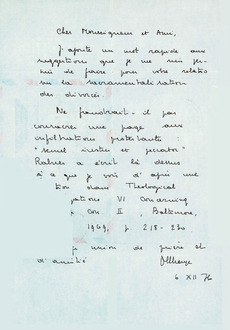 Cher Monseigneur et Ami,
J'ajoute un mot rapide aux
suggestions que je me suis per-
mis de faire pour votre relatio
sur la sacramentalisation
des divorcés.
Ne faudrait-il pas
consacrer une page aux
infiltrations protestantes
"simul iustus et peccator"
Rahner a écrit là dessus
si a que je vois d'après une
tion dans Theological
gations VI Concerning
n Con. II, Baltimore,
1969, p. 218-230
je union de prière et
d'amitié
6 XII 76